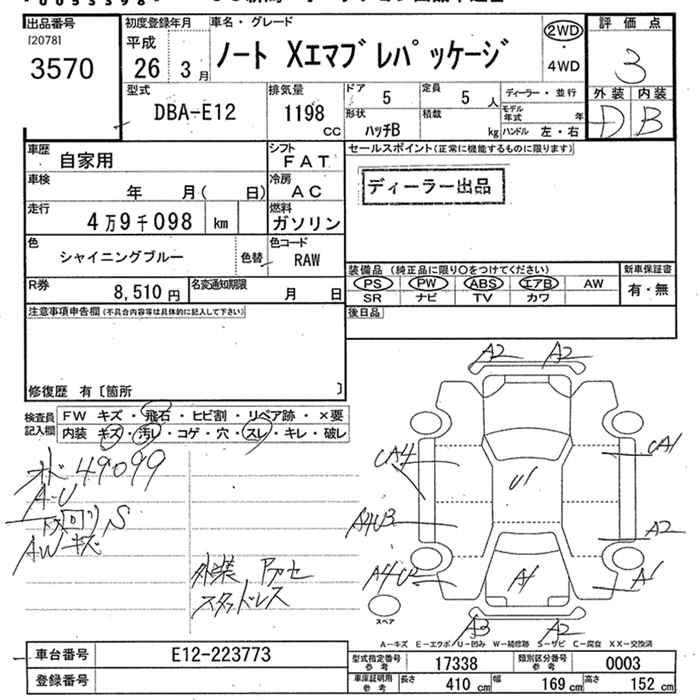 出品番号 初度登録年月 車名・グレード 評価点
[2078]
3570
平成 26年 3月
ノート Xエマブレパッケージ
2WD
・
4WD
3
型式 排気量 ドア 定員 ディーラー・並行 外装 内装
DBA-E12 1198 CC 5 5人
形状 積載 モデル年式 年
ハッチB kg ハンドル 左・右
D B
車歴 自家用 シフト FAT
セールスポイント(正常に機能するものに限ります)
車検 年 月( 日) 冷房 AC
ディーラー出品
走行 4万9千098 km 燃料 ガソリン
色 シャイニングブルー 色替 色コード RAW
装備品 (純正品に限り○をつけてください) 新車保証書
PS PW ABS エアB AW 有・無
SR ナビ TV カワ
R券 8,510円 名変通知期限 月 日
注意事項申告欄(不具合内容等は具体的に記入して下さい) 後日品
修復歴 有〔箇所 〕
検査員記入欄 FW キズ・飛石・ヒビ割・リペア跡・×要
内装 キズ・汚レ・コゲ・穴・スレ・キレ・破レ
A2 A2
49099
A-U
S
AWキズ
外装
スタッドレス
CA4 U1 CA1
A4U3 A2
A4U2 A1 A1
スペア
A3 A2
A-キズ E-エクボ U-凹み W-補修跡 S-サビ C-腐食 XX-交換済
車台番号 E12-223773
登録番号
型式指定番号参考 17338 類別区分番号参考 0003
車庫証明用参考 長さ 410cm 幅 169cm 高さ 152cm